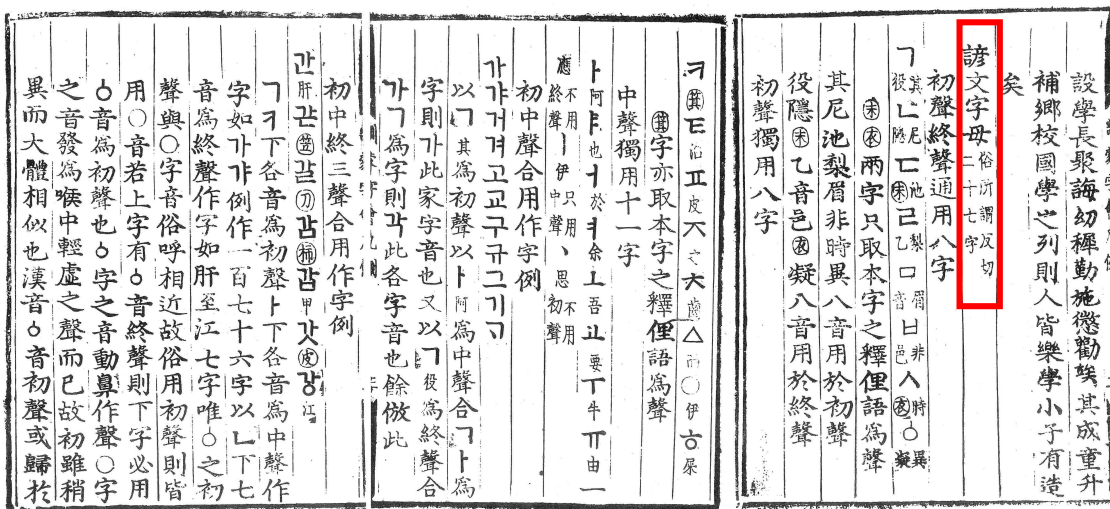 設學長聚誨幼穉勤施懲勸竢其成童升
補鄕校國學之列則人皆樂學小子有造
矣
諺文字母俗所謂反切二十七字
初聲終聲通用八字
ㄱ其役ㄴ尼隱ㄷ池末ㄹ梨乙ㅁ眉音ㅂ非邑ㅅ時衣ㆁ異凝
末衣兩字只取本字之釋俚語爲聲
其尼池梨眉非時異八音用於初聲
役隱末乙音邑衣凝八音用於終聲
初聲獨用八字
ㅋ箕ㅌ治ㅍ皮ㅈ之ㅊ齒ㅿ而ㅇ伊ㅎ屎
箕字亦取本字之釋俚語爲聲
中聲獨用十一字
ㅏ阿ㅑ也ㅓ於ㅕ余ㅗ吾ㅛ要ㅜ牛ㅠ由ㅡ
應不用終聲ㅣ伊只用中聲ㆍ思不用初聲
初中聲合用作字例
가갸거겨고교구규그기ᄀᆞ
以ㄱ其爲初聲以ㅏ阿爲中聲合ㄱㅏ爲
字則가此家字音也又以ㄱ役爲終聲合
가ㄱ爲字則각此各字音也餘倣此
初中終三聲合用作字例
간肝갇笠갈刀감柿갑甲갓皮강江
ㄱㅋ下各音爲初聲ㅏ下各音爲中聲作
字如가갸例作一百七十六字以ㄴ下七
音爲終聲作字如肝至江七字唯ㆁ之初
聲與ㅇ字音俗呼相近故俗用初聲則皆
用ㅇ音若上字有ㆁ音終聲則下字必用
ㆁ音爲初聲也ㆁ字之音動鼻作聲ㅇ字
之音發爲喉中輕虛之聲而已故初雖稍
異而大體相似也漢音ㆁ音初聲或歸於